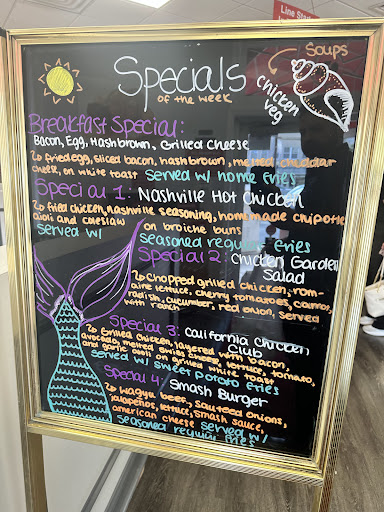 Line Starts
Specials
of the week
Soups
chicken
veg
Breakfast Special:
Bacon, Egg, Hashbrown, Grilled Cheese
fried egg, sliced bacon, hashbrown, melted cheddar
cheese, on white toast served w/ home fries
Special 1: Nashville Hot Chicken
fried chicken, nashville seasoning, homemade chipotle
aioli and coleslaw on broiche buns
served w/ seasoned regular fries
Special 2: Chicken Garden
Salad
chopped grilled chicken, rom-
aine lettuce, cherry tomatoes, carrot,
radish, cucumber, red onion, served
with ranch
Special 3: California Chicken
Club
Grilled chicken, layered with bacon,
avocado, melted swiss cheese, lettuce, tomato,
and garlic aioli on grilled white toast
served w/ sweet potato fries
Special 4: Smash Burger
wagyu beef, sauteed onions,
jalapeños, lettuce, smash sauce,
american cheese served w/
seasoned regular fries